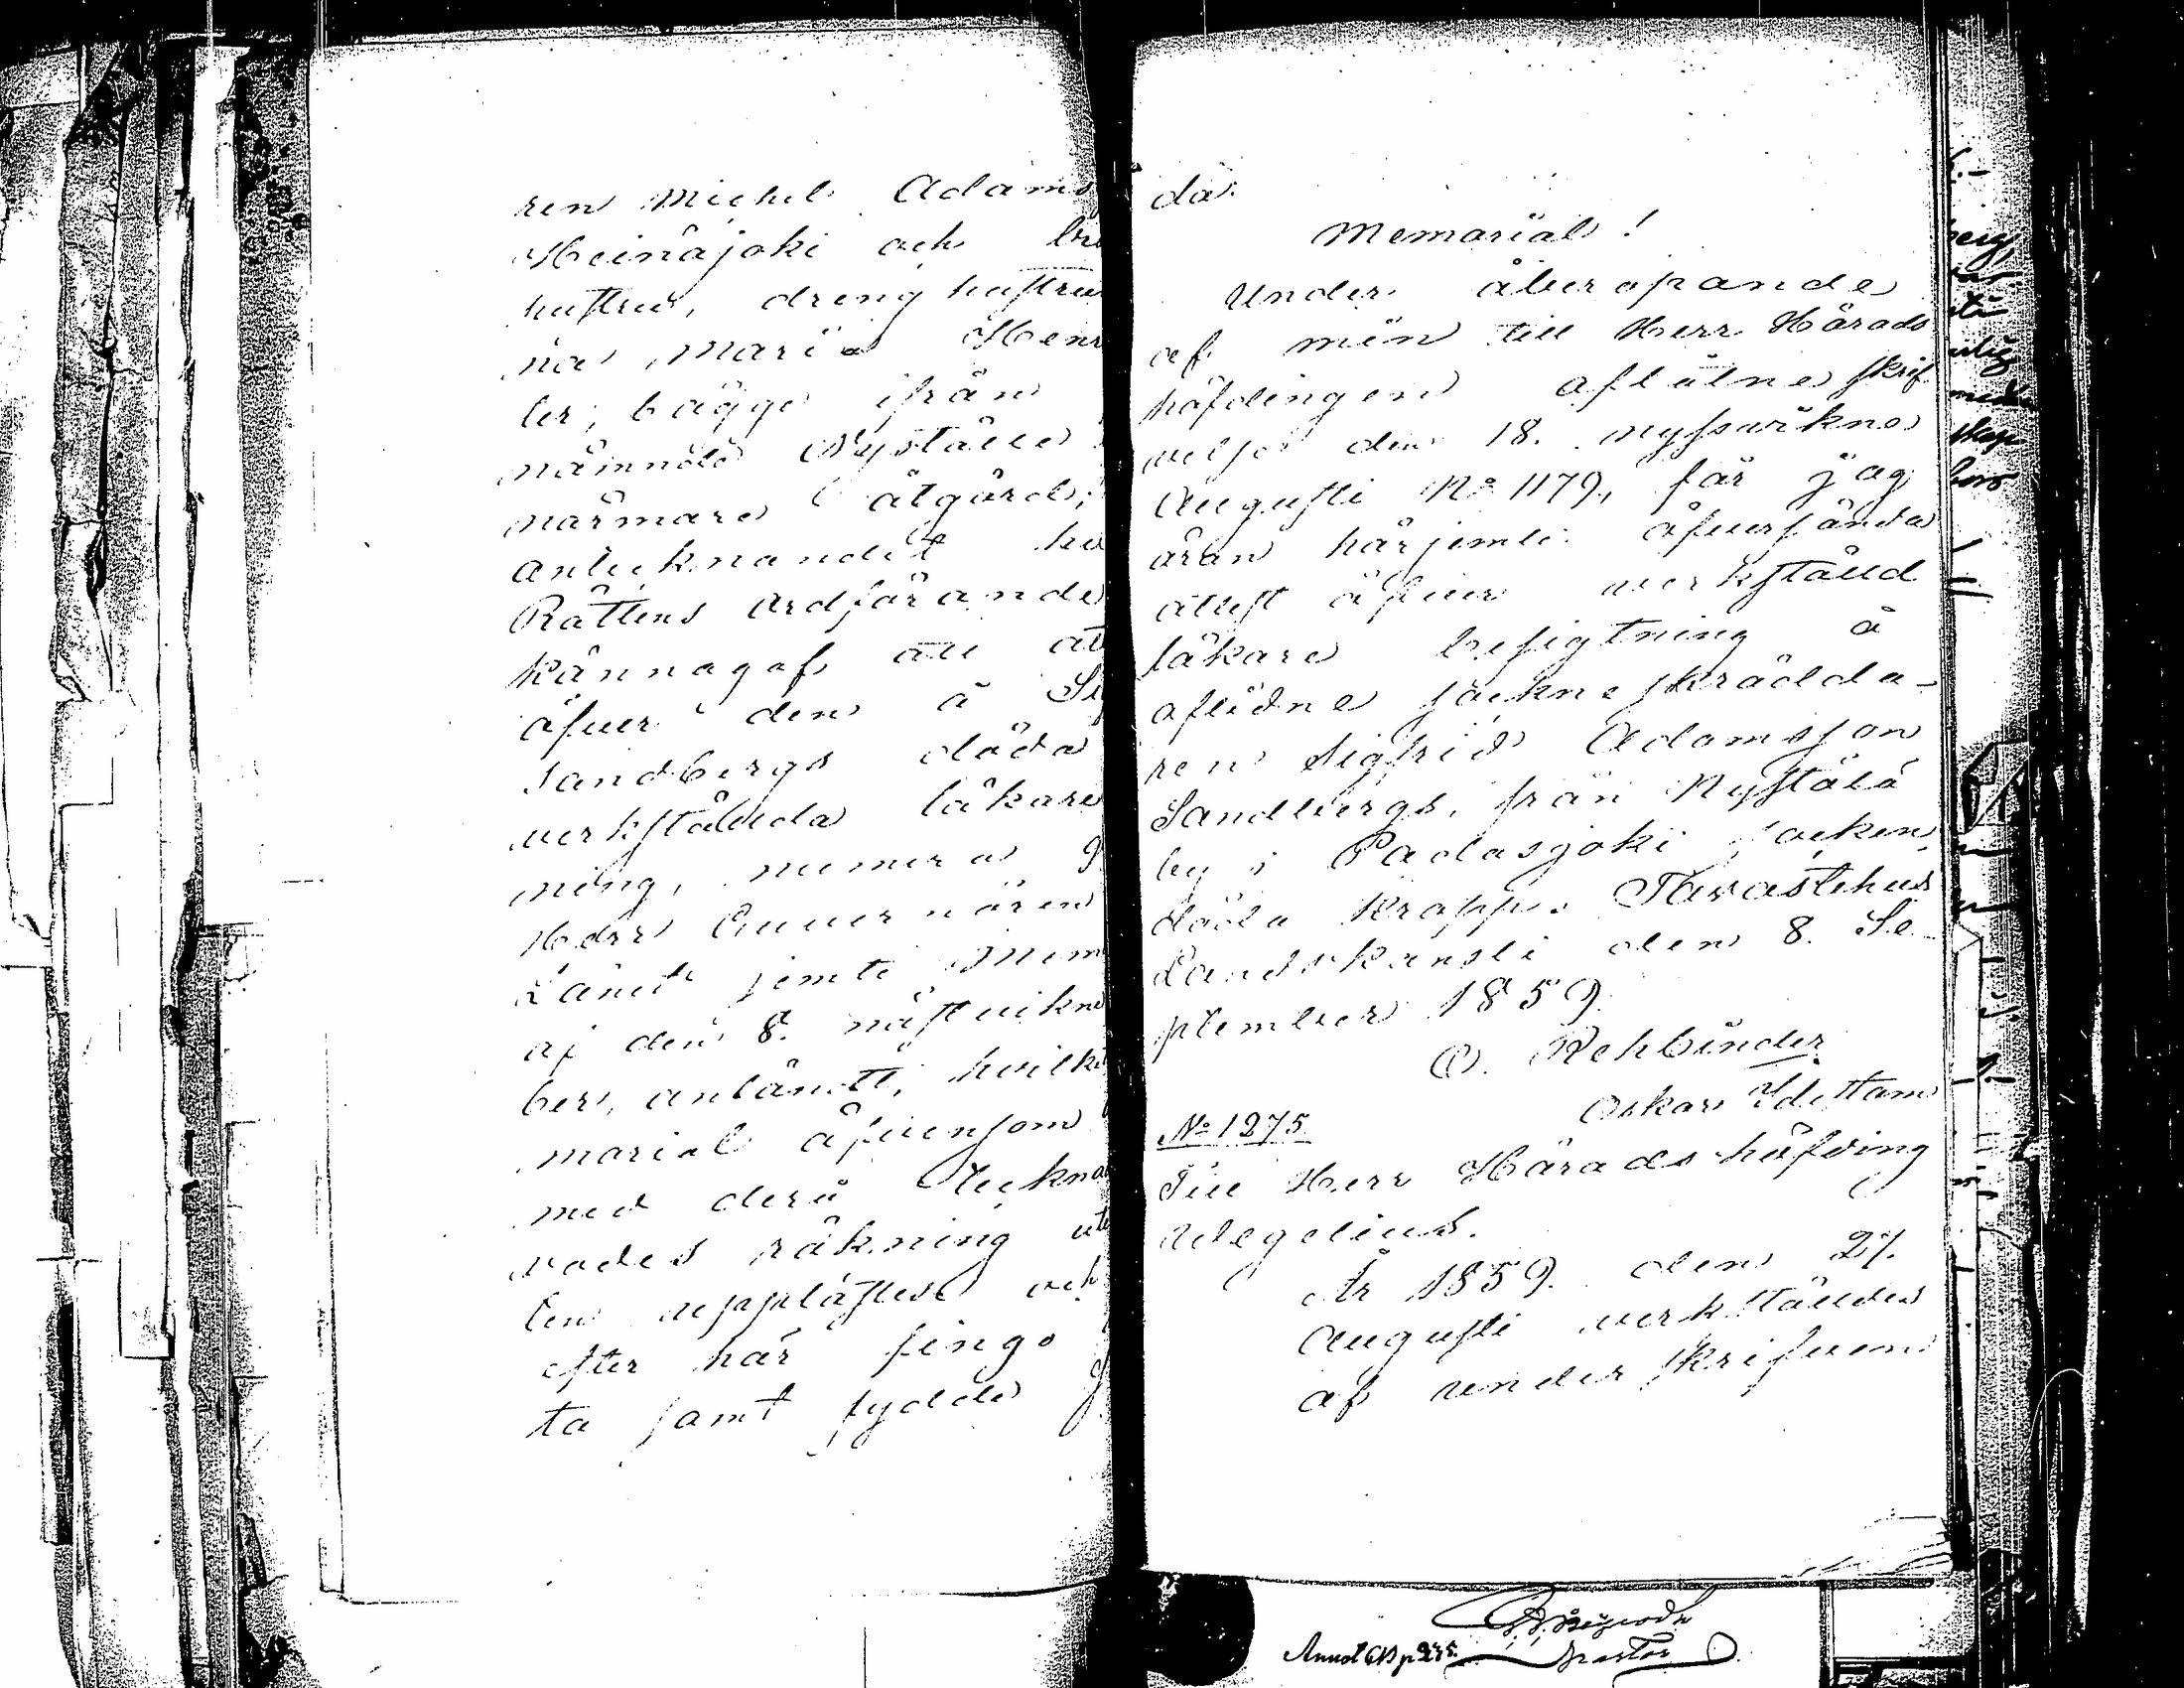 ren Michel Adams
Heinäjoki och bri
hustru, dreng hustru
na Maria Hen
ler, bägge ifrån
nämnde Nystälä
närmare åtgärd;
antecknandet hu
Rättens Ordförande
kännagaf att at
öfver den å Si
Sandbergs döda
verkställda läkare
ning, numera g
Herr Guvernören
Länet jemte Mem
af den 8. nästvikne
ber, anländt, hvilke
morial äfvensom
med derå teckna
rades räkning ut
len uppläστes och
efter här fingo
ta samt lydde
da:
Memorial!
Under åberopande
af min till Herr Härads
höfdingen aflåtne skrif
velse den 18. nyssvikne
Augusti No 1179, får jag
äran härjemte öfversända
attest öfver verkställd
läkare besigtning å
aflidne socknе skrädda-
ren Sigfrid Adamsson
Sandbergs, från Nystälä
by i Padasjoki socken,
döda kropp. Tavastehus
Landskansli den 8. Se
ptember 1859.
O. Rehbinder
Oskar Idestam
No 1275
Till Herr Häradshöfding
Wegelius.
År 1859. den 27.
Augusti verkställdes
af underskrifven